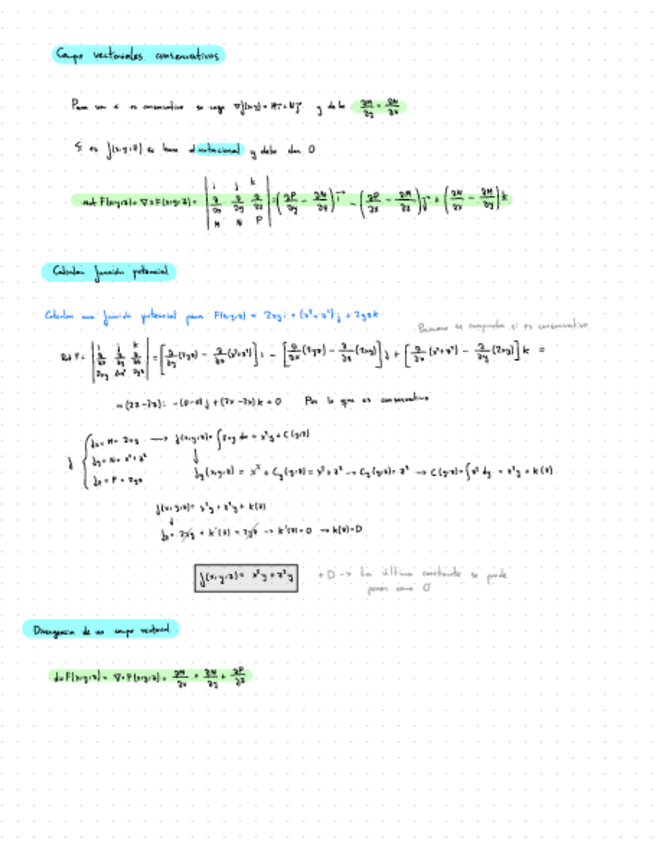 Campo vectoriales conservativos
Para ver si es conservativo se coge ∇f(x,y) = Mi + Nj y debe ∂M/∂y = ∂N/∂x
Si es f(x,y,z) se hace el rotacional y debe dar 0
rot F(x,y,z) = ∇×F(x,y,z) = | i j k ; ∂/∂x ∂/∂y ∂/∂z ; M N P | = (∂P/∂y − ∂N/∂z) i − (∂P/∂x − ∂M/∂z) j + (∂N/∂x − ∂M/∂y) k
Calcular función potencial
Calcular una función potencial para F(x,y,z) = 2xyi + (x²+z²)j + 2yzk
Primero se comprueba si es conservativo
Rot F = | i j k ; ∂/∂x ∂/∂y ∂/∂z ; 2xy x²+z² 2yz | = [∂/∂y (2yz) − ∂/∂z (x²+z²)] i − [∂/∂x (2yz) − ∂/∂z (2xy)] j + [∂/∂x (x²+z²) − ∂/∂y (2xy)] k =
= (2z−2z)i − (0−0)j + (2x−2x)k = 0 Por lo que es conservativo
f { fx = M = 2xy → f(x,y,z) = ∫2xy dx = x²y + C(y,z)
fy = N = x²+z²
fz = P = 2yz
↓
fy(x,y,z) = x² + Cy(y,z) = x²+z² → Cy(y,z) = z² → C(y,z) = ∫z² dy = z²y + k(z)
f(x,y,z) = x²y + z²y + k(z)
↓
fz = 2zy + k'(z) = 2yz → k'(z) = 0 → k(z) = D
f(x,y,z) = x²y + z²y
+ D → La última constante se puede
poner como 0
Divergencia de un campo vectorial
div F(x,y,z) = ∇·F(x,y,z) = ∂M/∂x + ∂N/∂y + ∂P/∂z